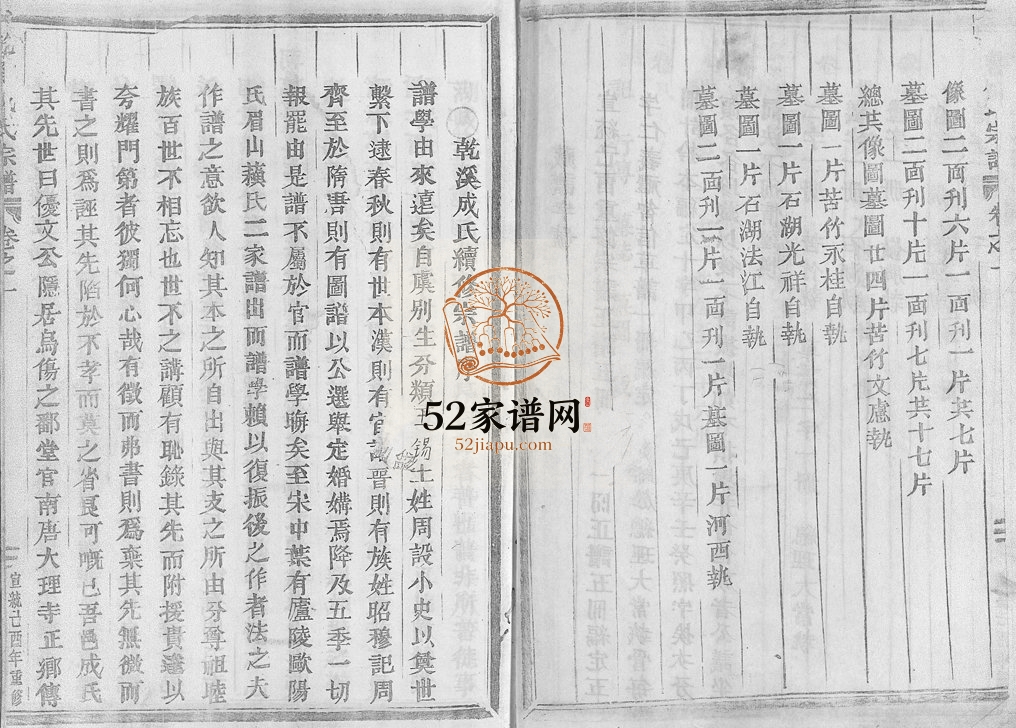 宗譜
卷之一
像圖二面刊六片一面刊一片共七片
墓圖二面刊十片一面刊七片共十七片
總共像圖墓圖廿四片苦竹文慮執
墓圖一片苦竹永桂自執
墓圖一片石湖光祥自執
墓圖一片石湖法江自執
墓圖二面刊一片一面刊一片墓圖一片河西執
乾溪成氏續修宗譜序
譜學由來遠矣自虞別生分類王錫土姓周設小史以奠世
繫下逮春秋則有世本漢則有官譜晉則有族姓昭穆記周
齊至於隋唐則有圖譜以公選舉定婚媾焉降及五季一切
報罷由是譜不屬於官而譜學晦矣至宋中葉有廬陵歐陽
氏眉山蘇氏二家譜出而譜學賴以復振後之作者法之夫
作譜之意欲人知其本之所自出與其支之所由分尊祖睦
族百世不相忘也世不之講顧有恥錄其先而附援貴遊以
夸耀門第者彼獨何心哉有徵而弗書則為棄其先無徵而
書之則為誣其先陷於不孝而莫之省良可嘅已吾邑成氏
其先世曰優文公隱居烏傷之鄱堂官南唐大理寺正鄉傳
氏宗譜
卷之一
宣統己酉年重修
52家谱网
52jiapu.com